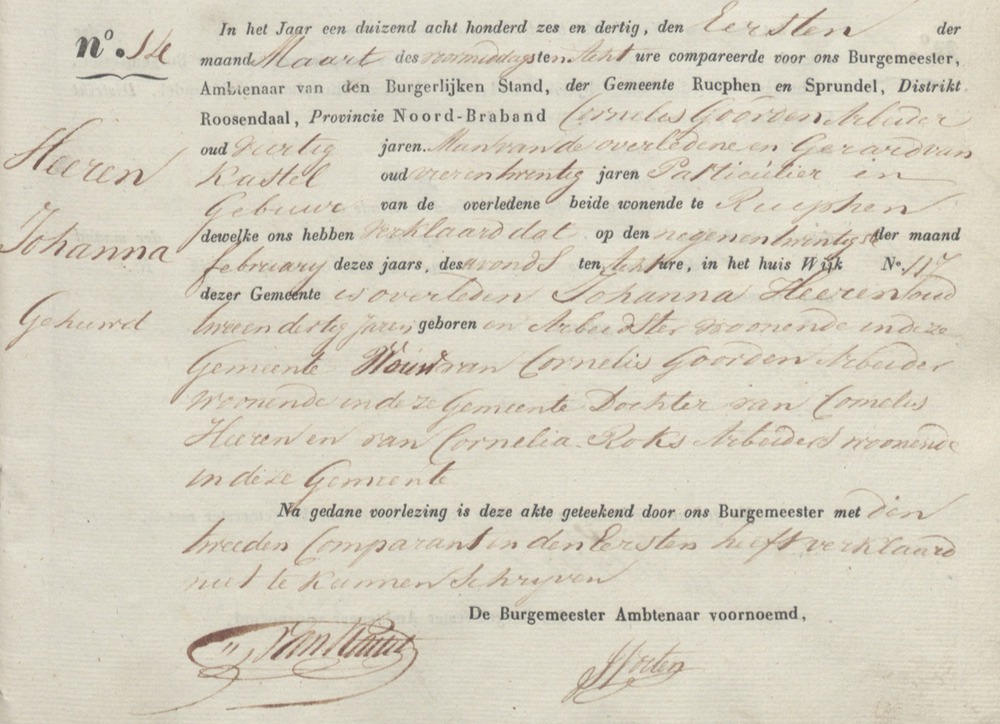 nº. 14
In het Jaar een duizend acht honderd zes en dertig, den Eersten der
maand Maart des voormiddags ten Acht ure compareerde voor ons Burgemeester,
Ambtenaar van den Burgerlijken Stand, der Gemeente Rucphen en Sprundel, Distrikt
Roosendaal, Provincie Noord-Braband Cornelis Goorden Arbeider
Heeren
Johanna
Gehuwd
oud dertig jaren. Man van de overledene en Gerard van
Kastel oud vierentwintig jaren Particulier en
Gebuur van de overledene beide wonende te Rucphen
dewelke ons hebben verklaard dat op den negenentwintigst der maand
february dezes jaars, des avonds ten Acht ure, in het huis Wijk Nº. 117
dezer Gemeente is overleden Johanna Heeren oud
tweeendertig Jaren geboren en Arbeidster woonende in deze
Gemeente Vrouw van Cornelis Goorden Arbeider
woonende in deze Gemeente Dochter van Cornelis
Heeren en van Cornelia Roks Arbeiders woonende
in deze Gemeente
Na gedane voorlezing is deze akte geteekend door ons Burgemeester met den
tweeden Comparant en den Eersten heeft verklaard
niet te kunnen Schrijven
De Burgemeester Ambtenaar voornoemd,